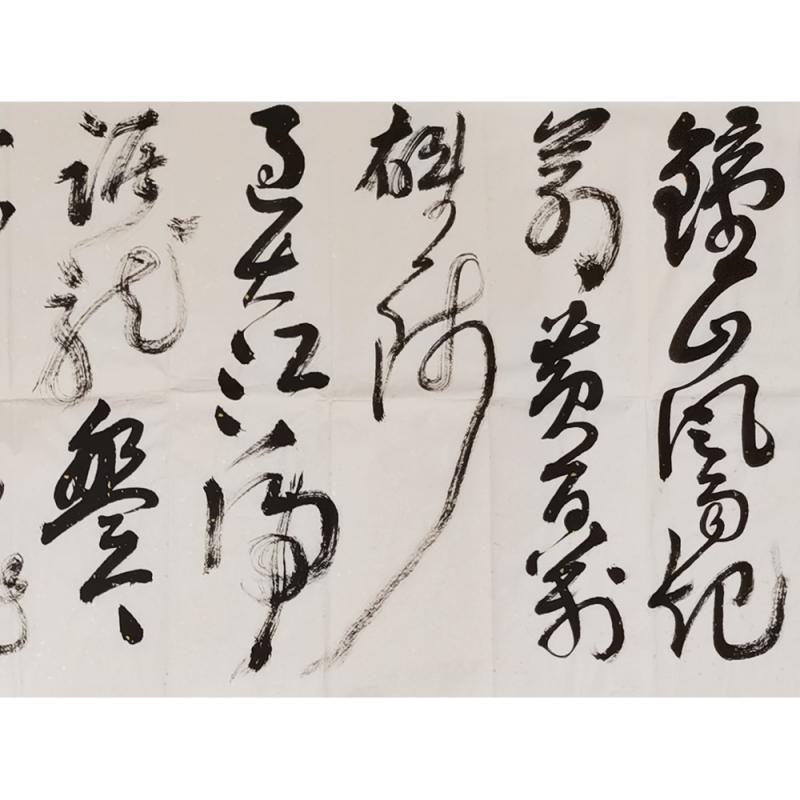 鐘山風雨起
蒼黃百萬
雄師
過大江虎
踞龍盤今